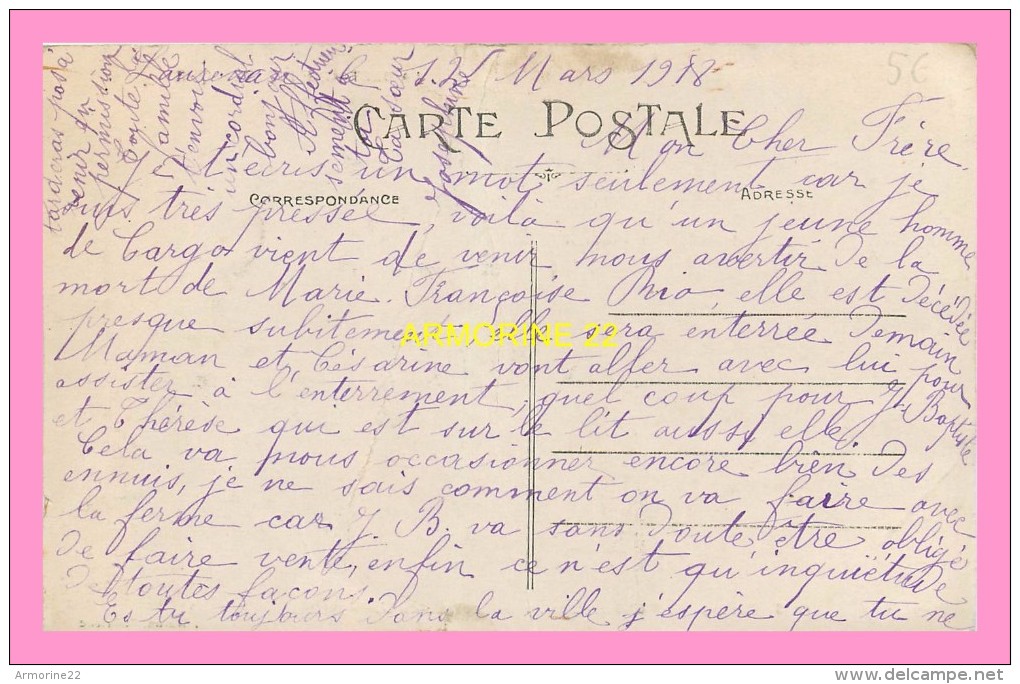 5€
12 Mars 1918
CARTE POSTALE
Mon Cher Frère
Je t'écris un mot seulement car je
CORRESPONDANCE
ADRESSE
suis très pressée, voilà qu'un jeune homme
de Cargo vient de venir nous avertir de la
mort de Marie-Françoise Rio, elle est décédée
presque subitement elle sera enterrée demain
ARMORINE 22
Maman et Césarine vont aller avec lui pour
assister à l'enterrement, quel coup pour J. Baptiste
et Thérèse qui est sur le lit aussi elle.
Cela va nous occasionner encore bien des
ennuis, je ne sais comment on va faire avec
la ferme car J. B. va sans doute être obligé
de faire vente, enfin ce n'est qu'inquiétude
de toutes façons.
Es tu toujours dans la ville j'espère que tu ne
tarderas pas à
venir en
permission
Toute la
famille
t'envoie
un cordial
bonjour
Affectueu
sement à
toi
Ta sœur
Joséphine
Armorine22
delcampe.net